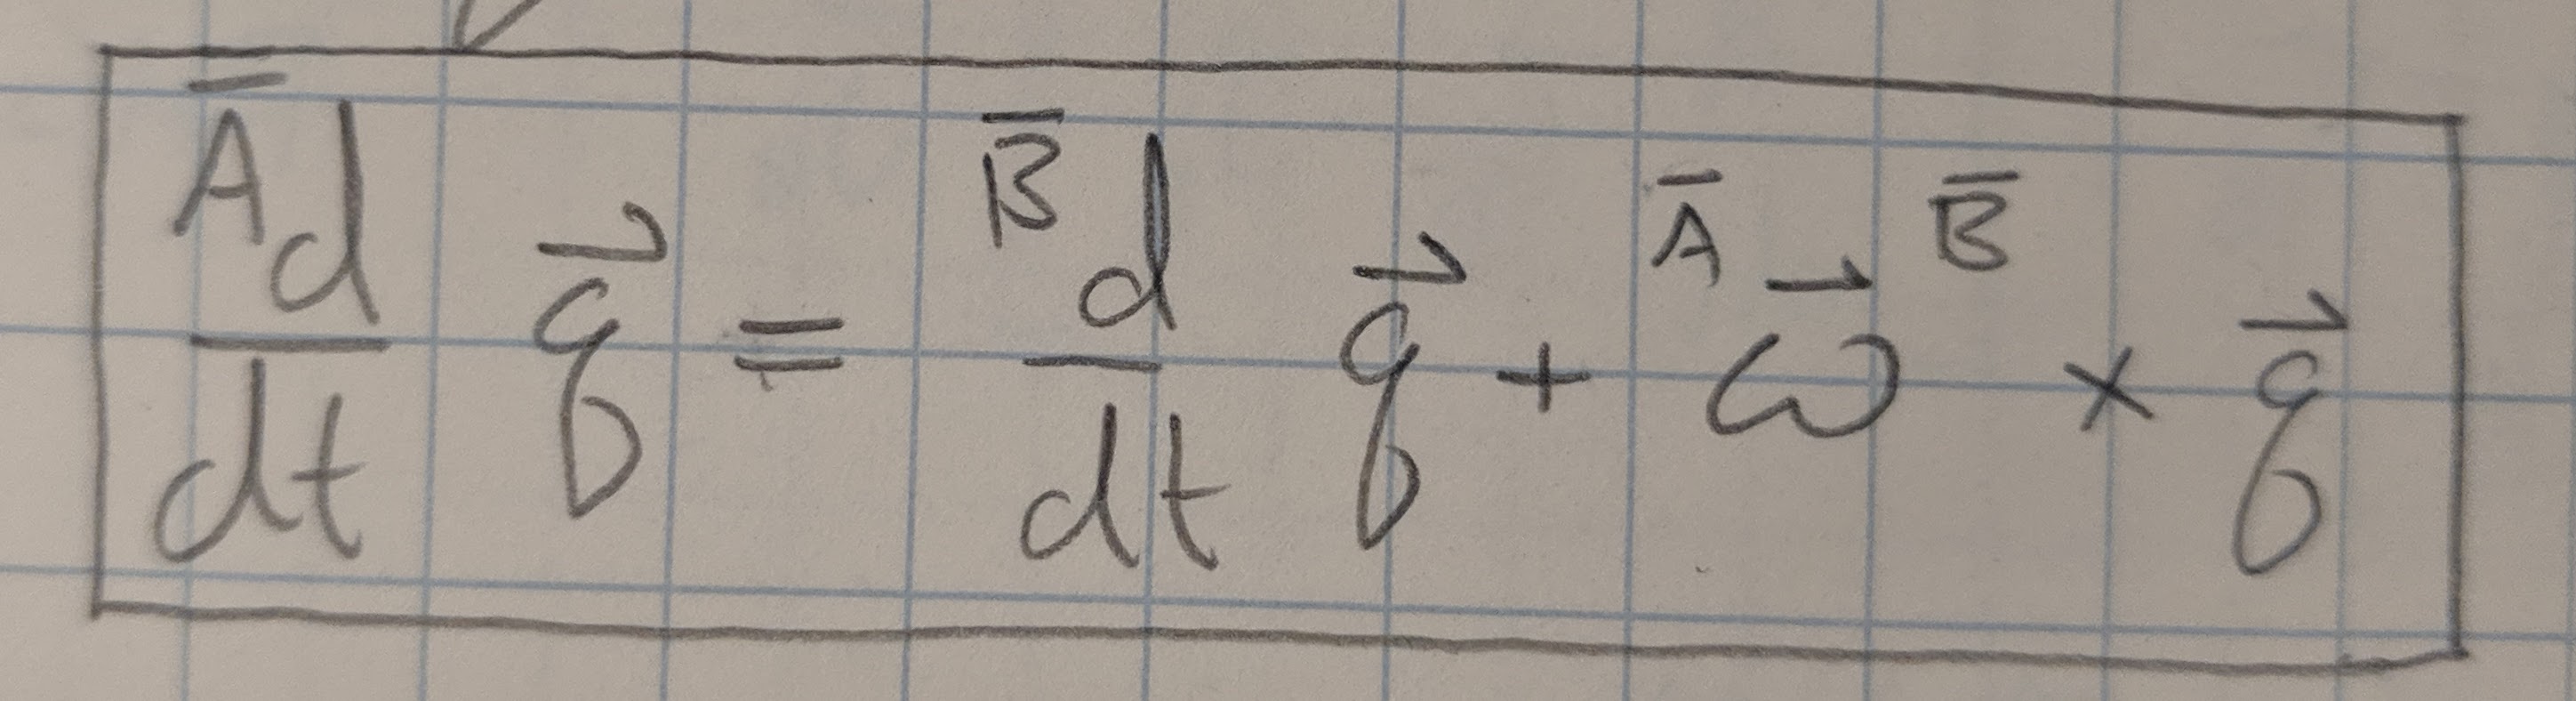 $\frac{{}^{\bar{A}}d}{dt} \vec{q} = \frac{{}^{\bar{B}}d}{dt} \vec{q} + {}^{\bar{A}}\vec{\omega}^{\bar{B}} \times \vec{q}$